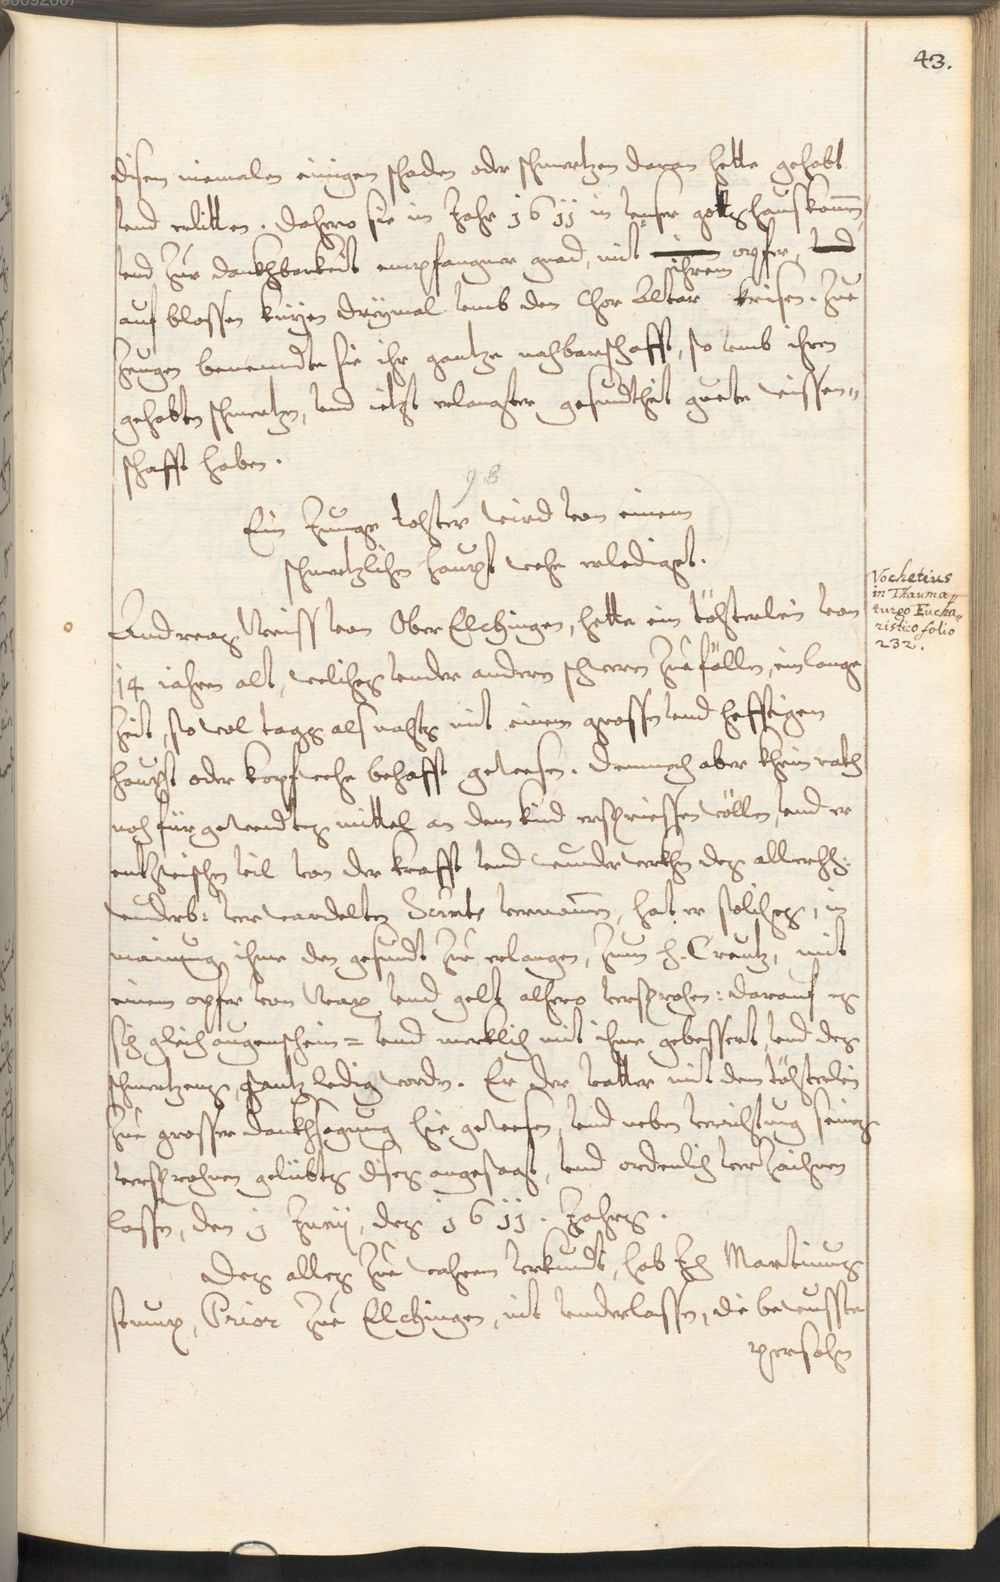 43.
disem niemalen einigen schaden oder schmertzen daran hette gehabt
vnd erlitten. Dahero sie im Jahr 1611 in vnser gottshaus kommen,
vnd zur danckhbarkeit empfangner gnad, mit ihrem opfer,
auf blossen knÿen dreÿmal vmb den Chor Altar krisen. Zue
Zeugen benenndte sie ihr gantze nachbarschafft, so vmb ihren
gehabten schmertzen, vnd ietzt erlangter gesundtheit guete wissen„
schafft haben.
98
Ein Junge tochter wird von einem
schmertzlichen haupt wehe erlediget.
Vochetius
in Thauma„
turgo Eucha„
ristico folio
232.
Andreas Weiss von Ober Elchingen, hette ein töchterlein von
14 iahren alt, welches vnder anderen schweren Zuefällen, ein lange
Zeit, so wol tags als nachts mit einem grossen vnd hefftigen
haupt oder kopfwehe behafft gewesen. Demnach aber khein rath
noch fürgewendtes mittel an dem kind erspriessen wöllen, vnd er
entzwischen vil von der krafft vnd wunderwerkhen des allerhh:
wunderb: verwandelten Scrmts vernommen, hat er solches, in
mainung ihme den gesundt zue erlangen, zum h. Creutz, mit
einem opfer von Wax vnd gelt alhero versprochen: darauf es
sich gleich augenschein= vnd merklich mit ihme gebessert, vnd des
schmertzens gantz ledig worden. Er der vatter mit dem töchterlein
zue grosser danckhsagung hie gewesen, vnd neben verrichtung seines
versprochnen gelübts dises angesagt, vnd ordenlich verzaichnen
lassen, den 1 Junij, des 1611. Jahrs.
Des alles zue wahrem vrkundt, hab Ich Martinus
stump, Prior zue Elchingen, nit vnderlassen, die bewusste
persohn